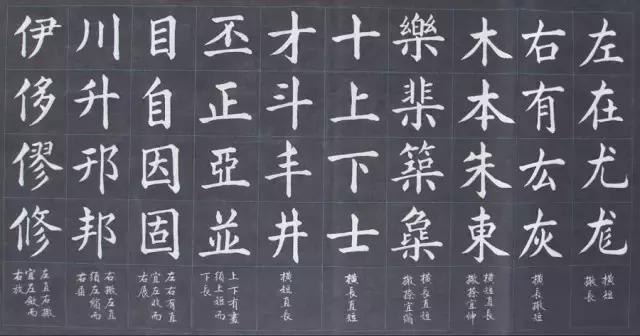 左在尤尨
橫短
撇長
右有厷灰
橫長
撇短
木本朱東
橫短直長
撇捺宜伸
樂棐築
橫長直短
撇捺宜縮
十上下士
橫長直短
才斗丰井
橫短直長
丕正亞並
上下有畫
須上短而
下長
目自因固
左右有直
宜左收而
右展
川升邦
右撇左直
須左縮而
右垂
伊侈僇修
左直右撇
宜左斂而
右放